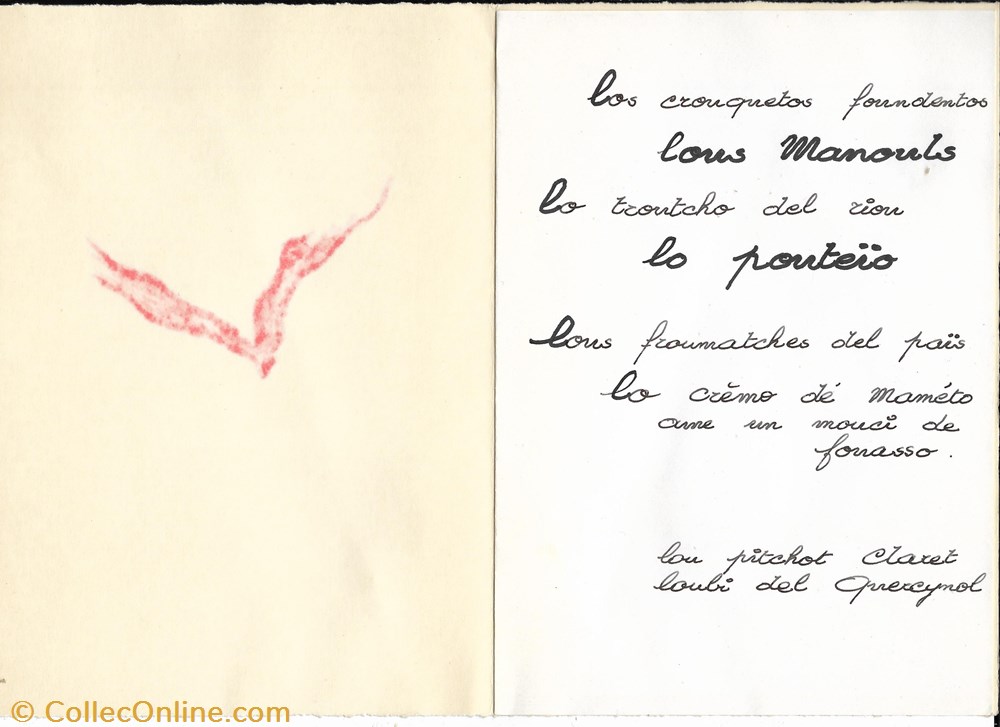 Los crouquetos foundentos
lous Manouls
Lo troutcho del riou
lo pouteïo
Lous froumatches del païs
Lo crĕmo dé Maméto
ame un mouci de
fouasso.
lou pitchot Claret
loubi del Quercynol
© CollecOnline.com